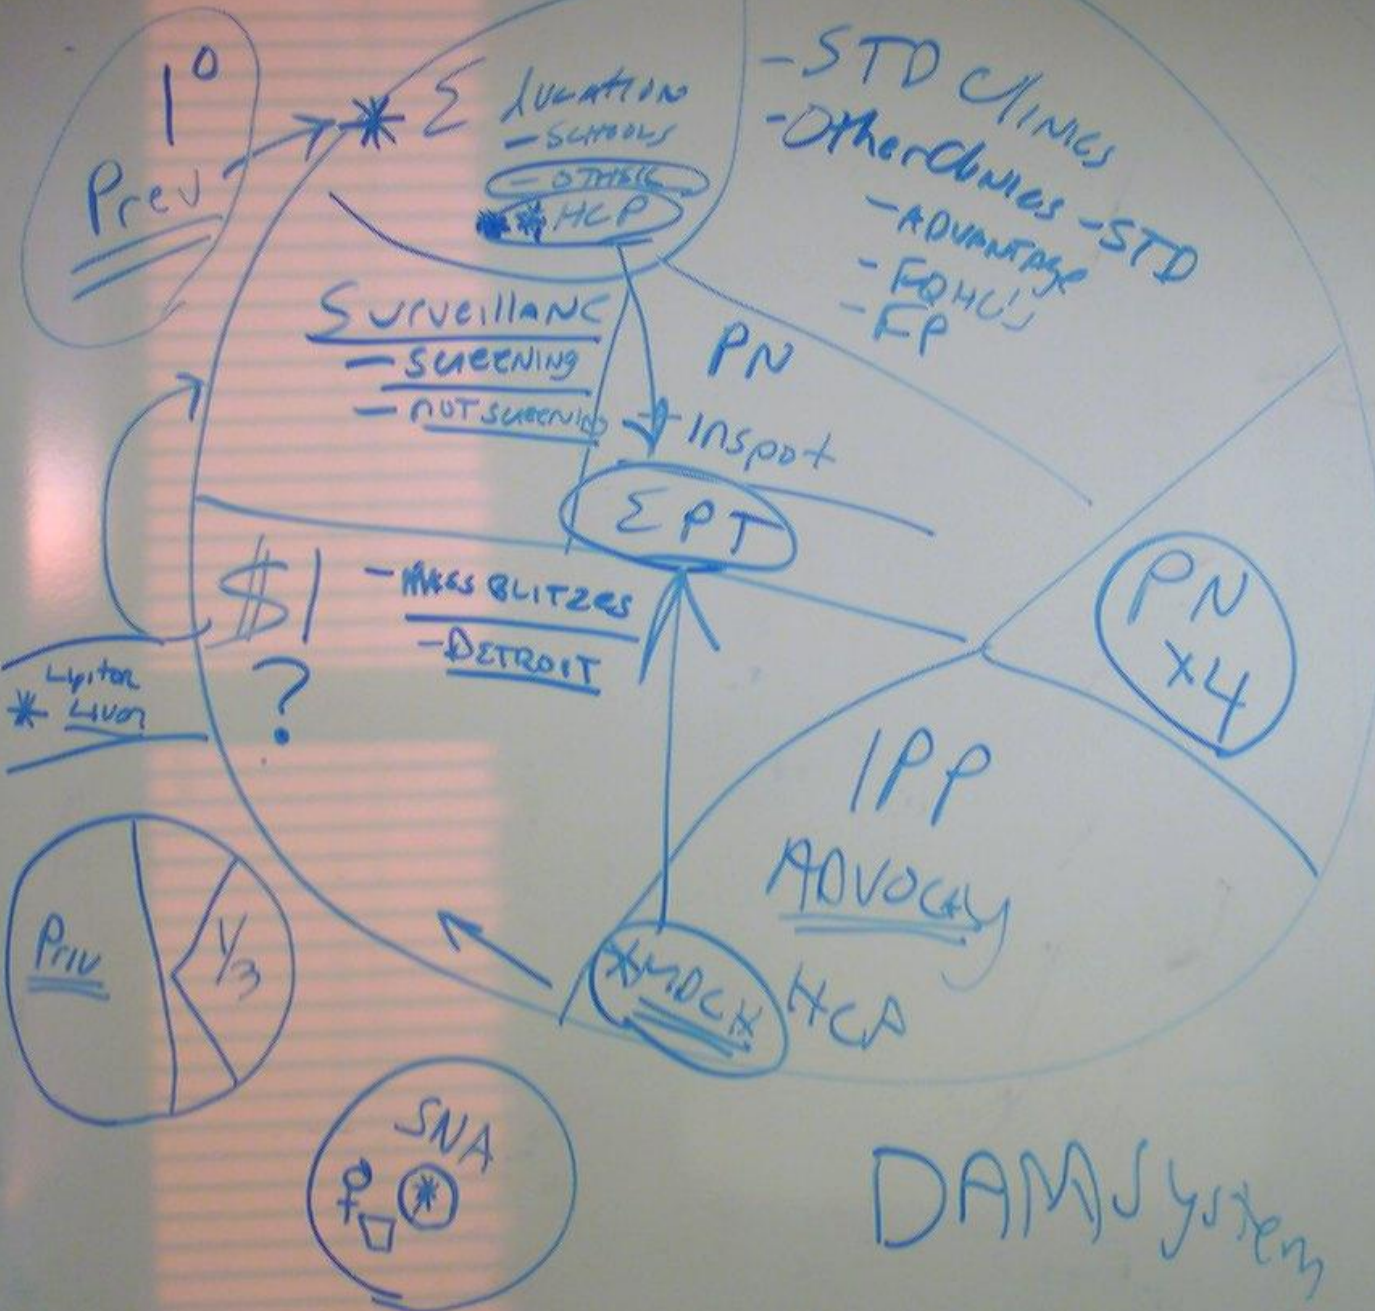 1° Prev
* Education
- SCHOOLS
- OTHER
** HCP
- STD Clinics
- Other Clinics - STD
- ADVANTAGE
- FQHC's
- FP
Surveillanc
- SCREENING
- NOT SCREENING
PN
+ Inspot
EPT
$1
?
- MASS BLITZES
- DETROIT
Lipitor
* Liver
PN
x4
IPP
ADVOCAcy
*MDCH
HCP
Priv
1/3
SNA
*
DAMSystem